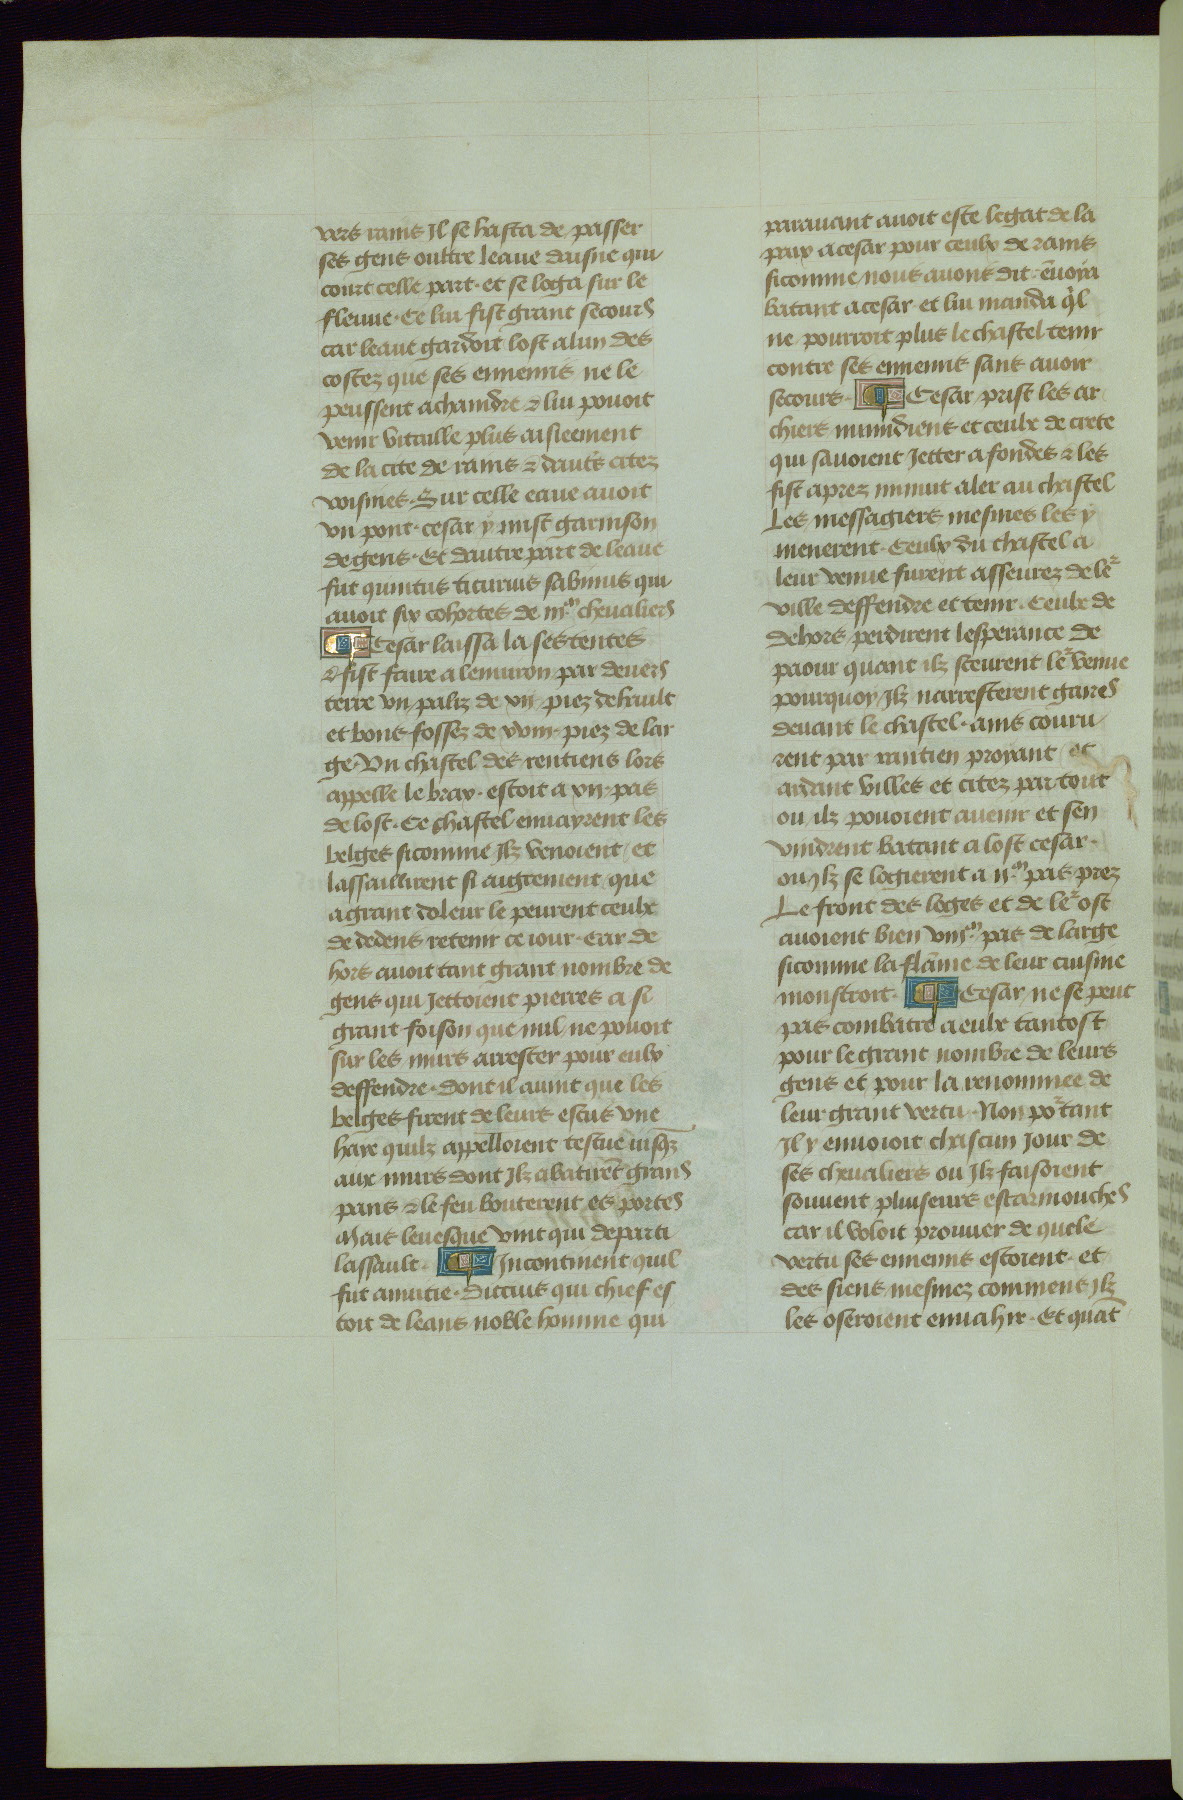 vers rains Il se hasta de passer
ses gens oultre leaue daisne qui
court celle part· et se loga sur le
fleuue· Ce lui fist grant secours
car leaue gardoit lost alun des
costez que ses ennemis ne le
peussent achaindre & lui pouoit
venir vitaille plus aisieement
de la cite de rains & daut's citez
voisines· Sur celle eaue auoit
vn pont· cesar y mist garnison
de gens· Et dautre part de leaue
fut quintus titurius sabinus qui
auoit six cohortes de iii.m chevaliers
¶ Cesar laissa la ses tentes
& fist faire alenuiron par deuers
terre vn paliz de xii piez de hault
et bons fossez de xviii· piez de lar
ge Vn chastel des rentiens lors
appelle le brax· estoit a vii· pas
de lost· Ce chastel enuayrent les
belges sicomme Ilz venoient et
lassaillirent si aigrement que
a grant doleur le peurent ceulx
de dedens retenir ce iour· Car de
hors auoit tant grant nombre de
gens qui Jettoient pierres a si
grant foison que nul ne pouoit
sur les murs arrester pour eulx
deffendre· dont il auint que les
belges firent de leurs escus vne
haye quilz appelloient testue iusq̄z
aux murs dont Ilz abatirēt grans
pans & le feu bouterent es portes
Mais leuesque vint qui departi
lassault· ¶ Incontinent quil
fut anuitie· Diccius qui chief es
toit de leans noble homme qui
parauant auoit este legat de la
paix a cesar pour ceulx de rains
sicomme nous auons dit· ēuoia
batant a cesar· et lui manda q'l
ne pourroit plus le chastel tenir
contre ses ennemis sans auoir
secours· ¶ Cesar prist les ar
chiers numidiens et ceulx de crete
qui sauoient Jetter a fondes & les
fist aprez minuit aler au chastel
Les messagiers mesmes les y
menerent· Ceulx du chastel a
leur venue furent asseurez de le'
ville deffendre et tenir· Ceulx de
dehors perdirent lesperance de
paour quant ilz sceurent le' venue
pourquoy Ilz narresterent gaires
deuant le chastel· ains couru
rent par rantien proyant et
ardant villes et citez par tout
ou ilz pouoient auenir et sen
vindrent batant a lost cesar·
ou Ilz se logierent a ii.m pas prez
Le front des loges et de le' ost
auoient bien viii.m pas de large
sicomme la flāme de leur cuisine
monstroit· ¶ Cesar ne se peut
pas combatre a eulx tantost
pour le grant nombre de leurs
gens et pour la renommee de
leur grant vertu· Non po'tant
Il y enuoioit chascun Jour de
ses cheualiers ou Ilz faisoient
souuent pluiseurs escarmouches
car il voloit prouuer de quele
vertu ses ennemis estoient· et
des siens mesmez comment Ilz
les oseroient enuahir· Et quāt